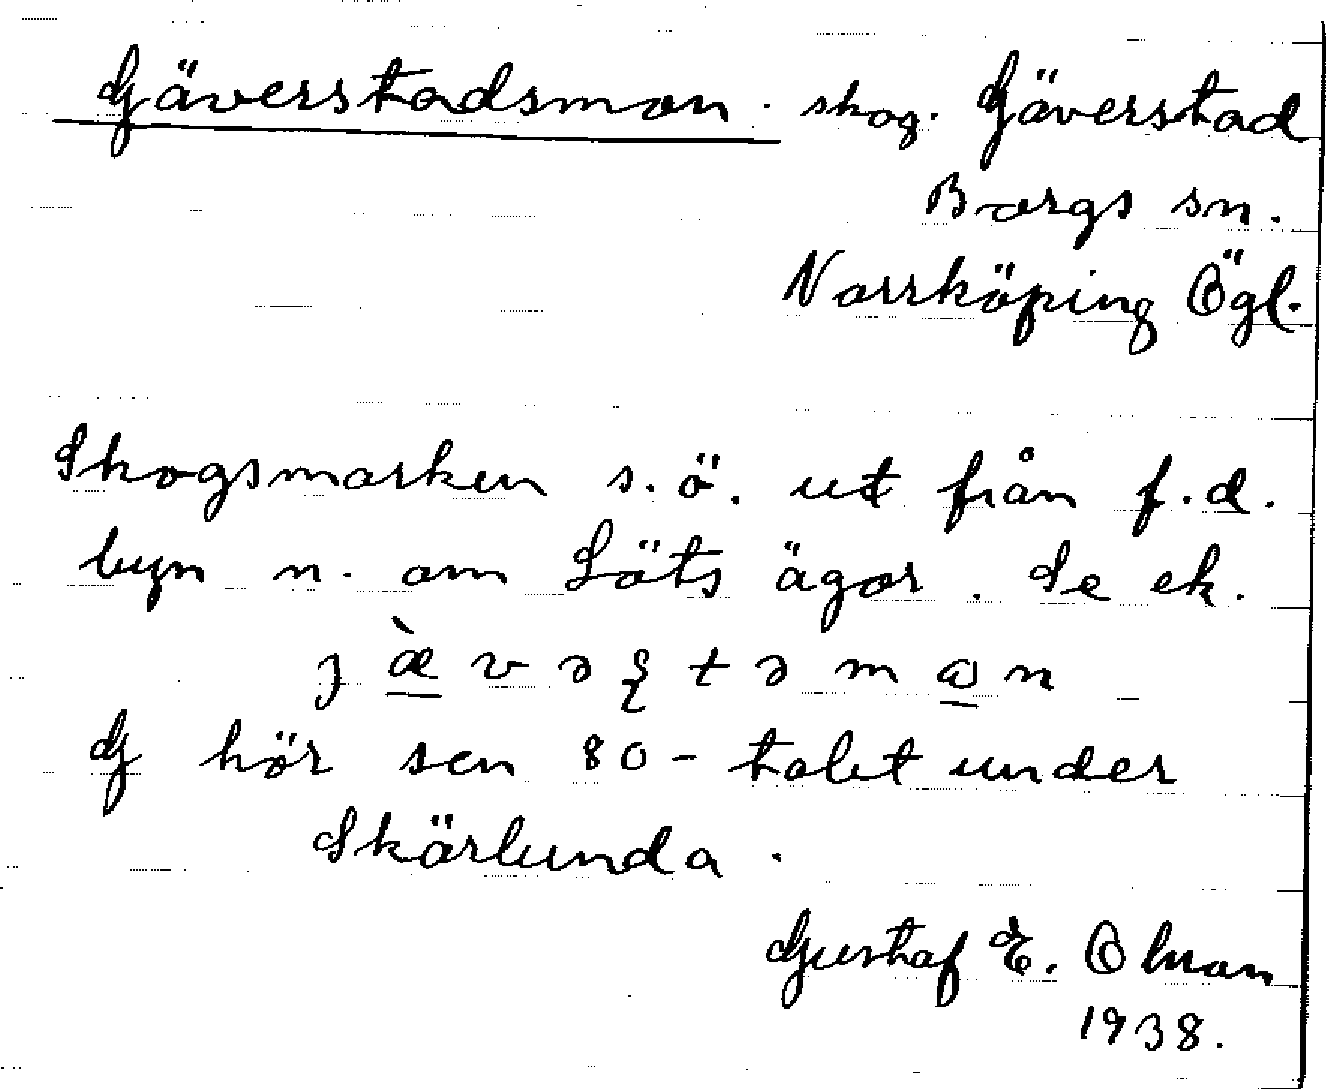 Gäverstadsmon. skog. Gäverstad
Borgs sn.
Norrköping Ögl.
Skogsmarken s.ö. ut från f.d.
byn n. om Löts ägor. Se ek.
G hör sen 80-talet under
Skärlunda.
Gustaf E. Ohman
1938.